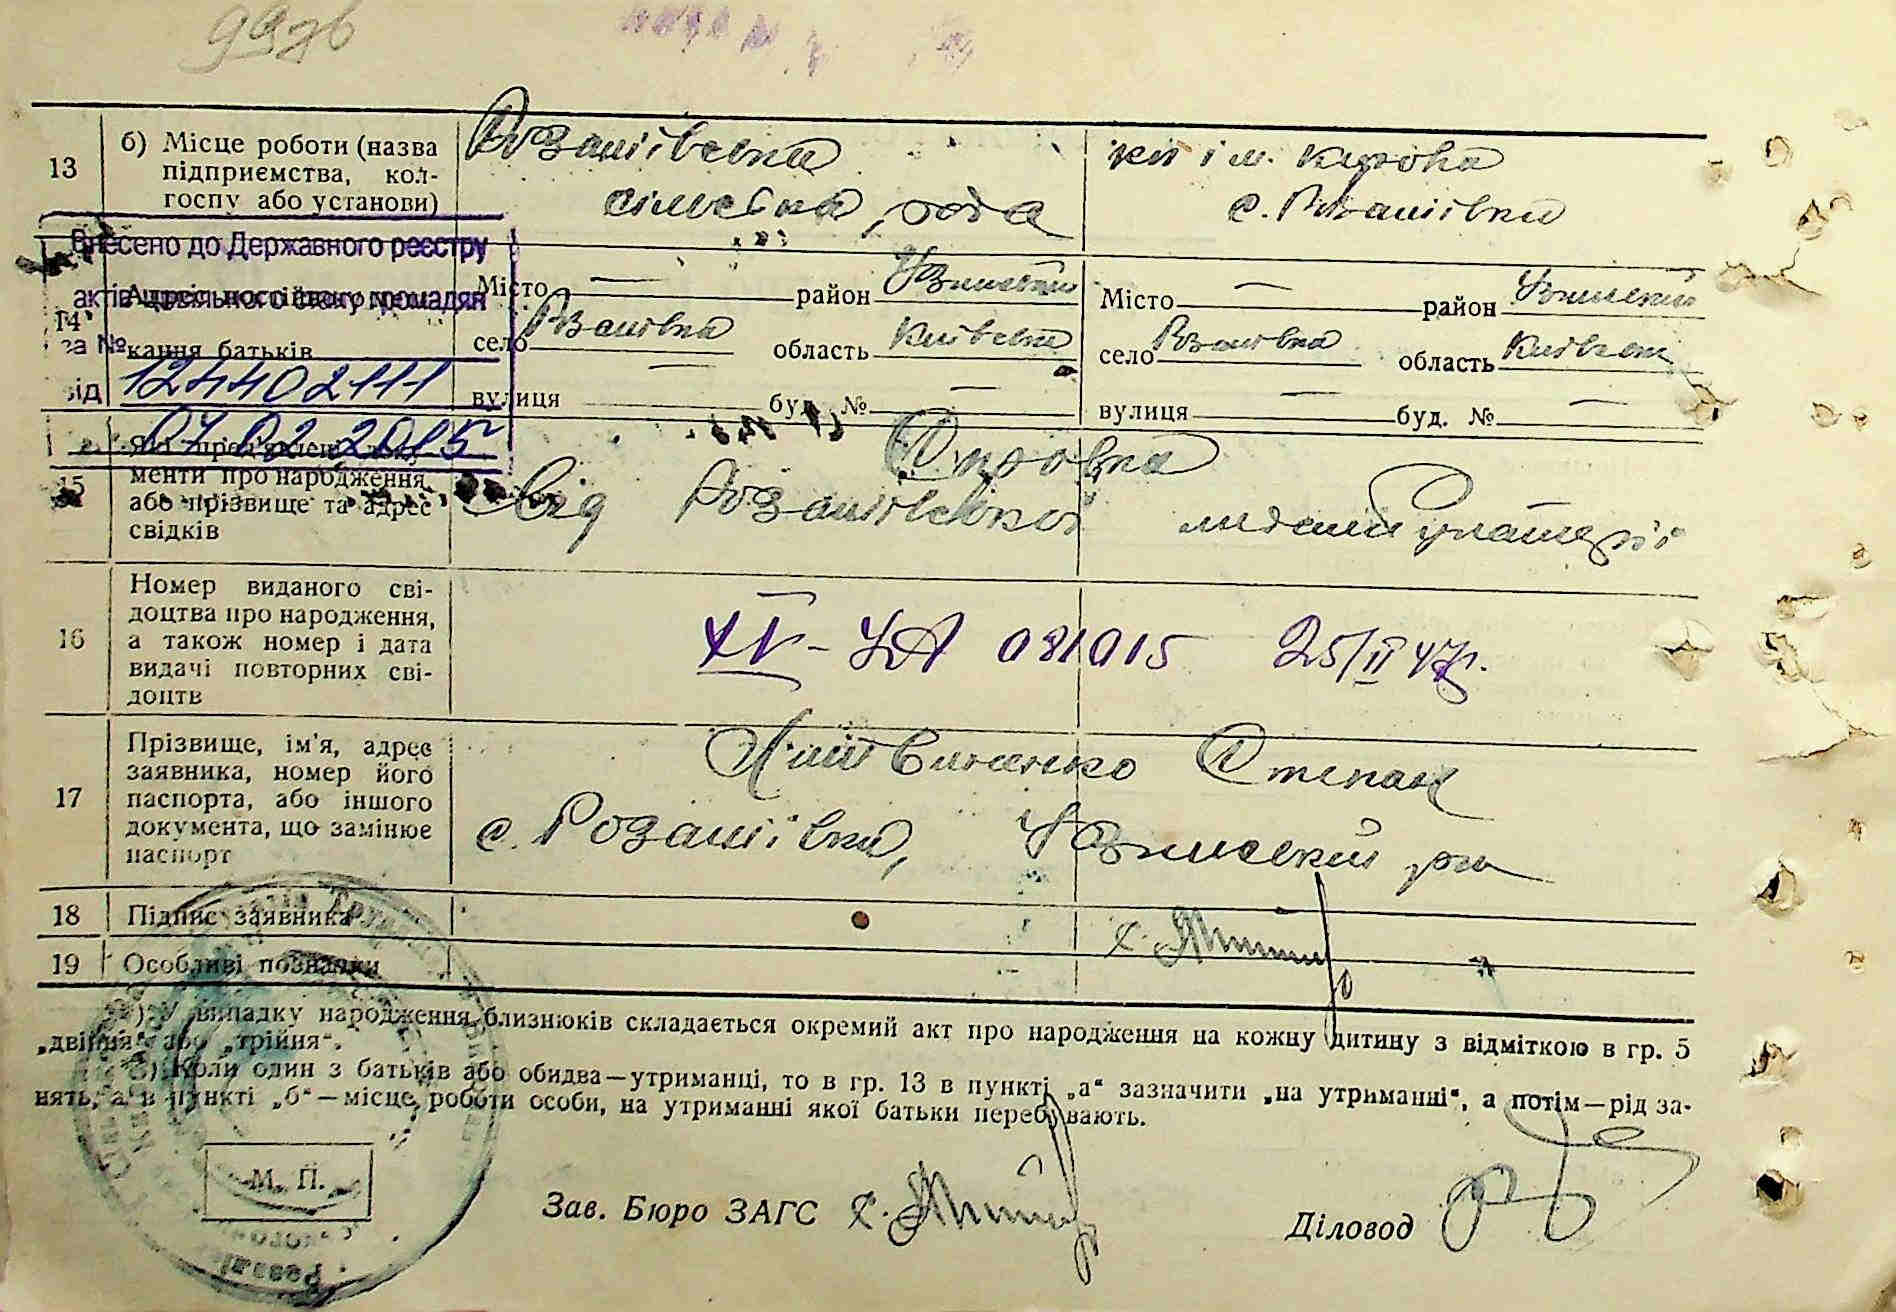 13
б) Місце роботи (назва підприємства, колгоспу або установи)
Розаліївська сільська рада
к-п ім. Кірова
с. Розаліївка
Внесено до Державного реєстру
актів цивільного стану громадян
за №
124402111
від
07 02 2015
14
кання батьків
Місто — район Узинський
село Розаліївка область Київська
вулиця — буд. № —
Місто — район Узинський
село Розаліївка область Київська
вулиця — буд. № —
15
Які пред'явлені документи про народження або прізвище та адрес свідків
Справка
від Розаліївської
16
Номер виданого свідоцтва про народження, а також номер і дата видачі повторних свідоцтв
081015 25/II 47р.
17
Прізвище, ім'я, адрес заявника, номер його паспорта, або іншого документа, що замінює паспорт
Степан
с. Розаліївка, Узинський р-н
18
Підпис заявника
19
Особливі позначки
) У випадку народження близнюків складається окремий акт про народження на кожну дитину з відміткою в гр. 5
„двійня“ або „трійня“.
) Коли один з батьків або обидва—утриманці, то в гр. 13 в пункті „а“ зазначити „на утриманні“, а потім—рід за-
нять, а в пункті „б“—місце роботи особи, на утриманні якої батьки перебувають.
М. П.
Зав. Бюро ЗАГС
Діловод